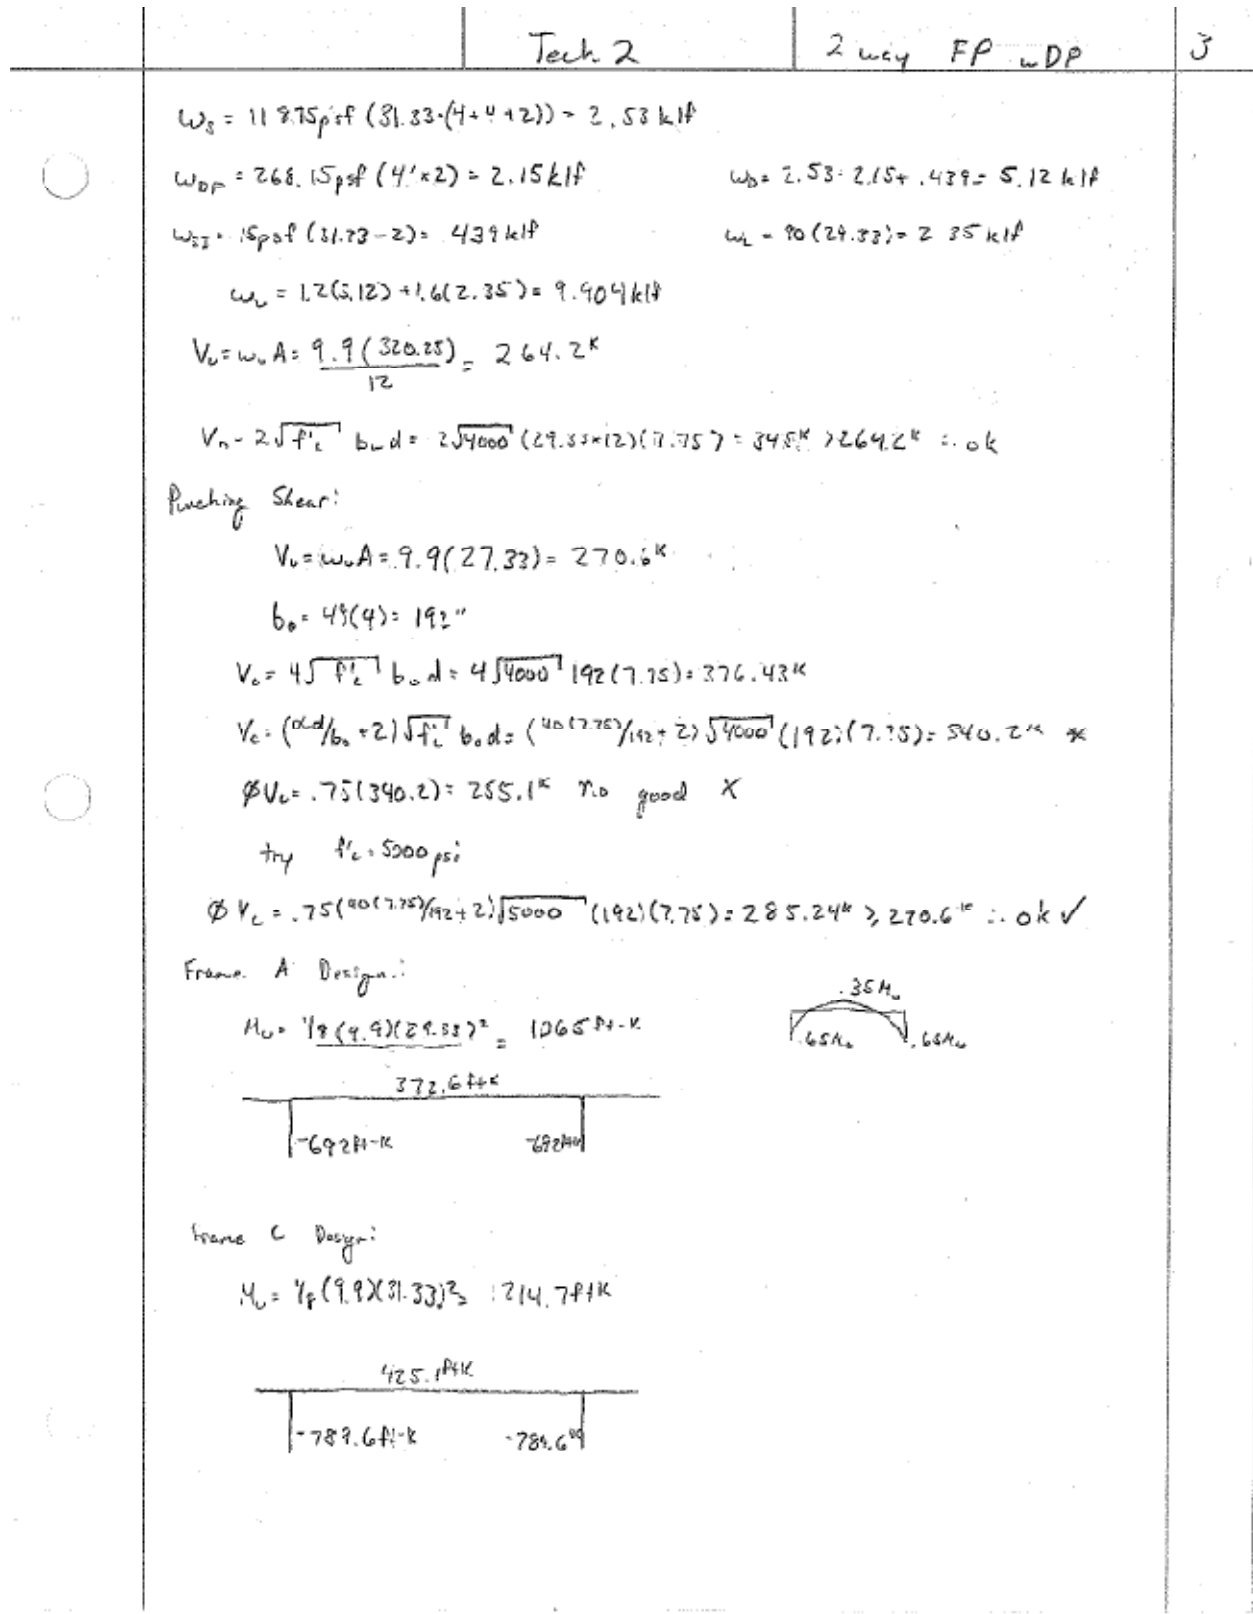 Tech. 2
2 way FP w DP
3
ws = 118.75psf (31.33-(4+4+2)) = 2.53 klf
wDP = 268.15psf (4'x2) = 2.15klf
wD = 2.53+2.15+.439= 5.12 klf
wSI = 15psf (31.33-2)= .439klf
wL = 80(29.33)= 2.35 klf
wu = 1.2(5.12) +1.6(2.35)= 9.904klf
Vu = wu A = 9.9(320.25)/12 = 264.2ᴷ
Vn = 2√f'c bw d = 2√4000 (29.33×12)(7.75) = 345ᴷ > 264.2ᴷ ∴ ok
Punching Shear:
Vu = wu A = 9.9(27.33)= 270.6ᴷ
bo = 48(4)= 192"
Vc = 4√f'c bo d = 4√4000 192(7.75)= 376.43ᴷ
Vc = (αd/bo +2)√f'c bo d = (40(7.75)/192+2)√4000 (192)(7.75)= 340.2ᴷ *
ØVc = .75(340.2)= 255.1ᴷ no good X
try f'c = 5000psi
ØVc = .75(40(7.75)/192+2)√5000 (192)(7.75)= 285.24ᴷ ≥ 270.6ᴷ ∴ ok ✓
Frame A Design:
.35Mu
Mu = 1/8(9.9)(29.33)² = 1065 ft-K
.65Mu .65Mu
372.6ftK
-692ft-K -692ftK
Frame C Design:
Mu = 1/8(9.9)(31.33)² = 1214.7ftK
425.1ftK
-789.6ft-K -789.6